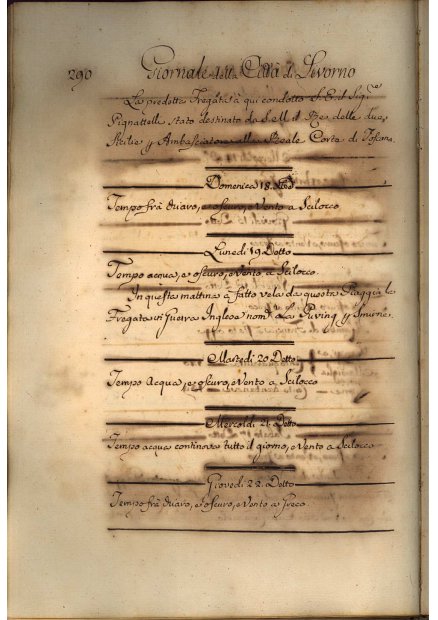 290 Giornale della Città di Livorno
La predetta Fregata à qui condotto S. E. il Sig.re
Pignattelli stato destinato da S. M. il Rè delle due
Sicilie p Ambasciatore alla Reale Corte di Toscana
Domenica 18 Detto
Tempo frà chiaro, e oscuro, e Vento a Scilocco
Lunedi 19 Detto
Tempo acqua, e oscuro, e Vento a Scilocco
In questa mattina à fatto vela da questa Piaggia la
Fregata di Guerra Inglese nom.
Martedi 20 Detto
Tempo Acqua, e oscuro, e Vento a Scilocco
Mercoldi 21 Detto
Tempo acqua continova tutto il giorno, e Vento a Scilocco
Giovedi 22 Detto
Tempo frà chiaro, e oscuro, e Vento a Greco